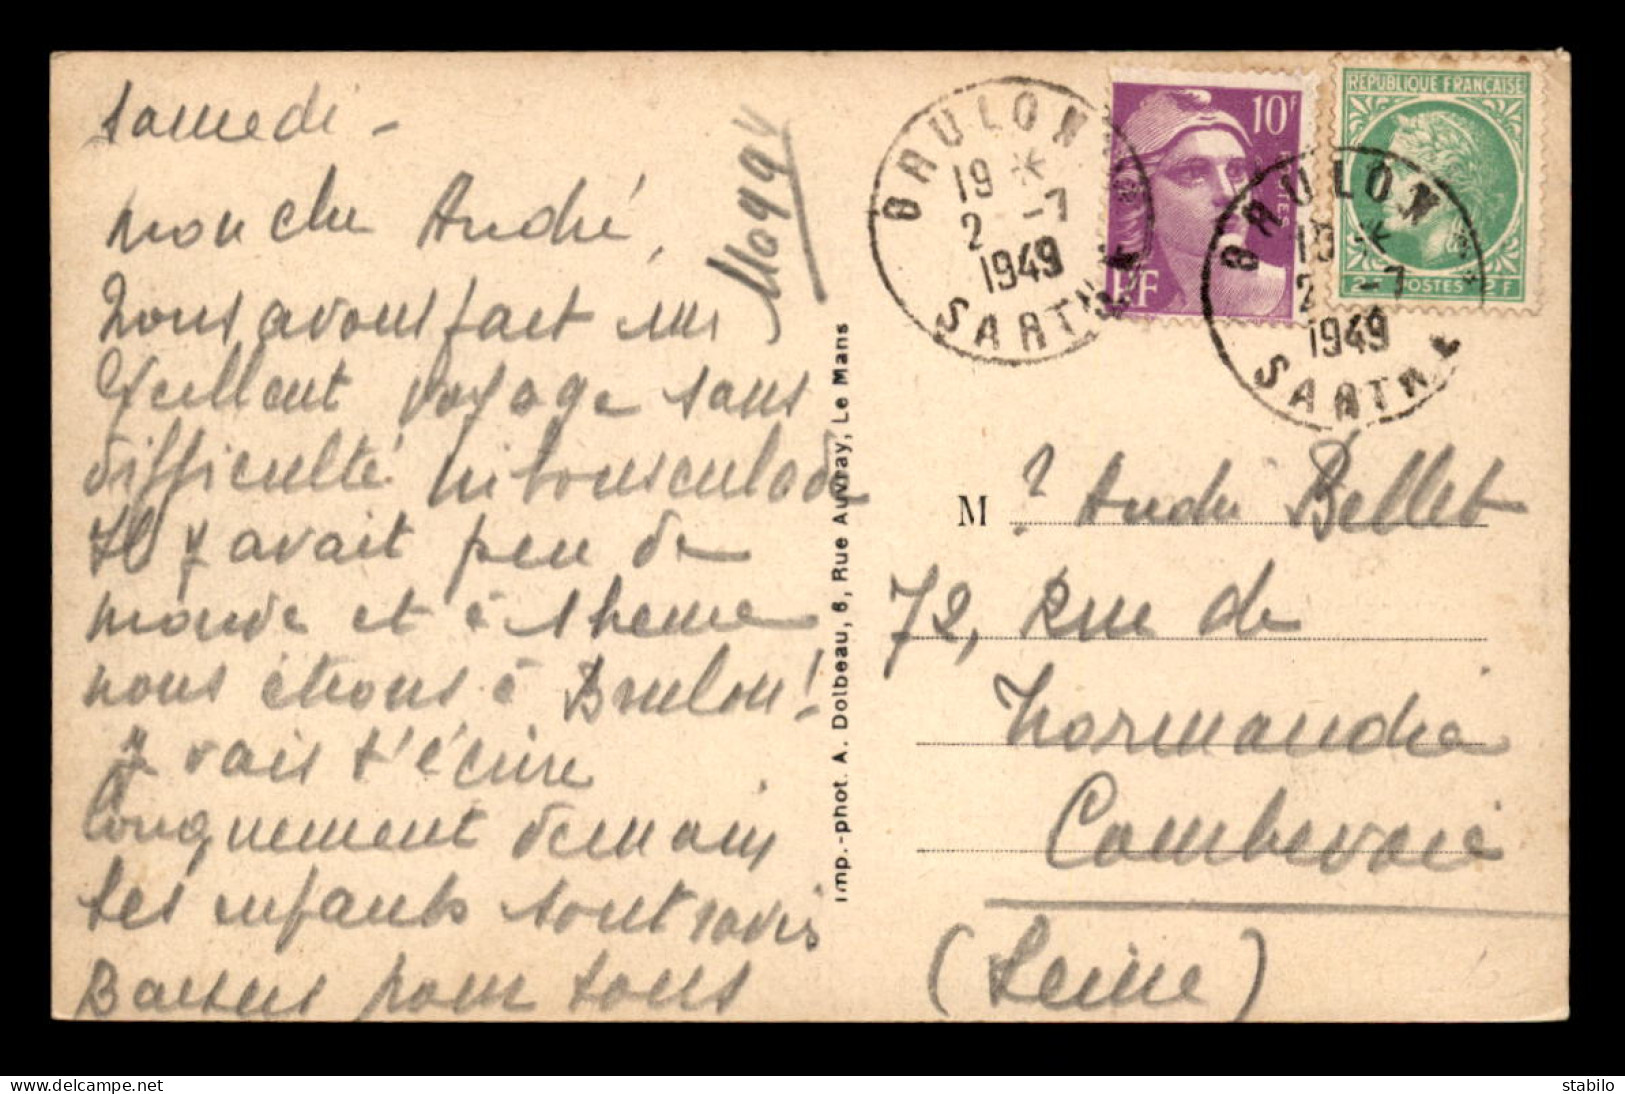 Samedi -
Mon cher André,
Nous avons fait un
excellent voyage sans
difficulté ni bousculade
Il y avait peu de
monde et à 1 heure
nous étions à Brulon !
Je vais t'écrire
longuement demain
Les enfants sont ravis
Baisers pour tous
Imp.-phot. A. Dolbeau, 6, Rue Auvray, Le Mans
BRULON
19 *
2 -7
1949
SARTHE
10F
POSTES
RF
BRULON
19 *
2 -7
1949
SARTHE
REPUBLIQUE FRANÇAISE
2F POSTES 2F
M r André Bellet
72, Rue de
Normandie
Courbevoie
(Seine)
stabilo | delcampe.net